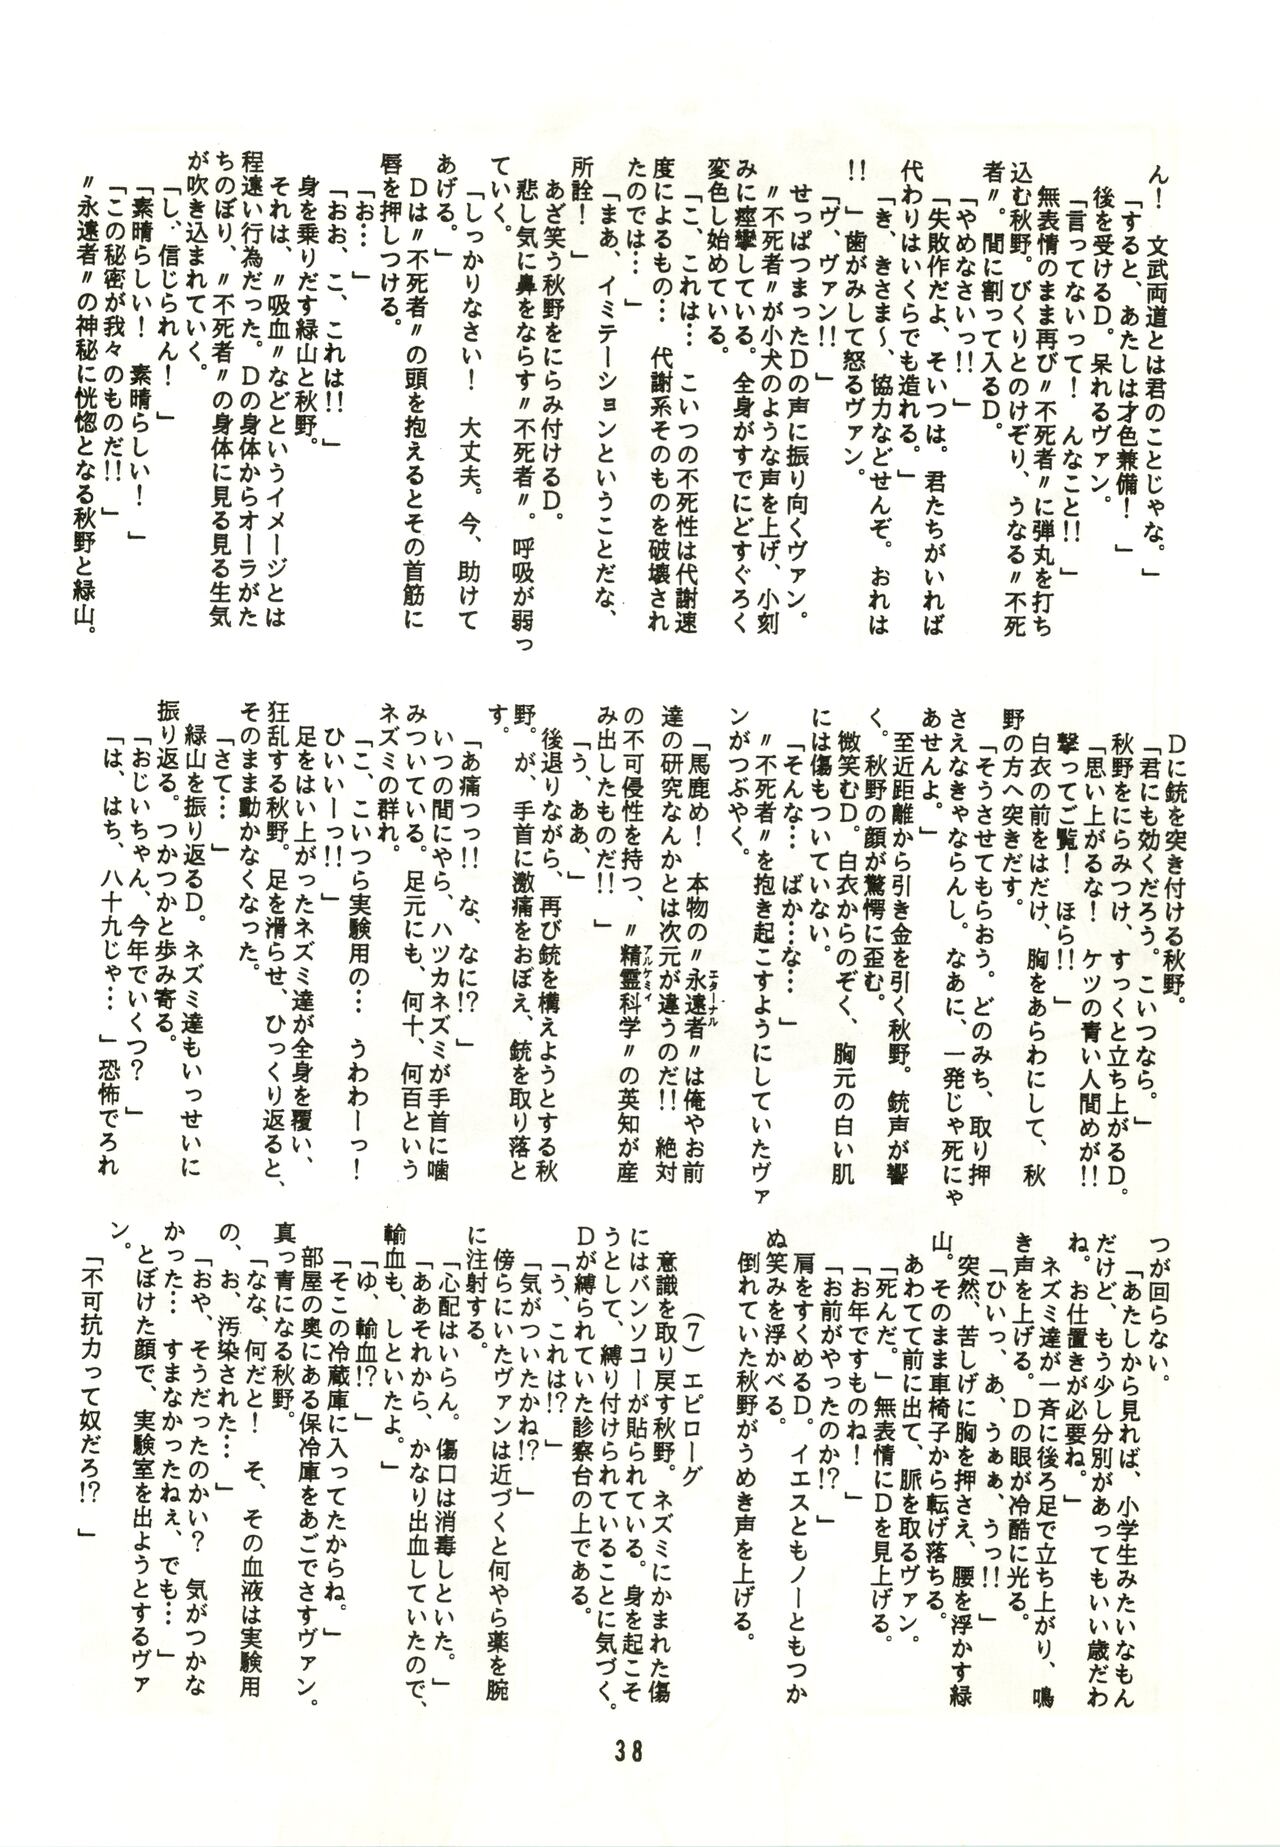 ん！　文武両道とは君のことじゃな。」
「すると、あたしは才色兼備！　」
後を受けるＤ。呆れるヴァン。
「言ってないって！　んなこと!!　」
無表情のまま再び〃不死者〃に弾丸を打ち
込む秋野。びくりとのけぞり、うなる〃不死
者〃。間に割って入るＤ。
「やめなさいっ!!　」
「失敗作だよ、そいつは。君たちがいれば
代わりはいくらでも造れる。」
「き、きさま～、協力などせんぞ。おれは
!!　」歯がみして怒るヴァン。
「ヴ、ヴァン!!　」
せっぱつまったＤの声に振り向くヴァン。
〃不死者〃が小犬のような声を上げ、小刻
みに痙攣している。全身がすでにどすぐろく
変色し始めている。
「こ、これは…　こいつの不死性は代謝速
度によるもの…　代謝系そのものを破壊され
たのでは…　」
「まあ、イミテーションということだな、
所詮！　」
あざ笑う秋野をにらみ付けるＤ。
悲し気に鼻をならす〃不死者〃。呼吸が弱っ
ていく。
「しっかりなさい！　大丈夫。今、助けて
あげる。」
Ｄは〃不死者〃の頭を抱えるとその首筋に
唇を押しつける。
「お…　」
「おお、こ、これは!!　」
身を乗りだす緑山と秋野。
それは、〃吸血〃などというイメージとは
程遠い行為だった。Ｄの身体からオーラがた
ちのぼり、〃不死者〃の身体に見る見る生気
が吹き込まれていく。
「し、信じられん！　」
「素晴らしい！　素晴らしい！　」
「この秘密が我々のものだ!!　」
〃永遠者〃の神秘に恍惚となる秋野と緑山。
Ｄに銃を突き付ける秋野。
「君にも効くだろう。こいつなら。」
秋野をにらみつけ、すっくと立ち上がるＤ。
「思い上がるな！　ケツの青い人間めが!!
撃ってご覧！　ほら!!　」
白衣の前をはだけ、胸をあらわにして、秋
野の方へ突きだす。
「そうさせてもらおう。どのみち、取り押
さえなきゃならんし。なあに、一発じゃ死にゃ
あせんよ。」
至近距離から引き金を引く秋野。銃声が響
く。秋野の顔が驚愕に歪む。
微笑むＤ。白衣からのぞく、胸元の白い肌
には傷もついていない。
「そんな…　ばか…な…　」
〃不死者〃を抱き起こすようにしていたヴァ
ンがつぶやく。
「馬鹿め！　本物の〃永遠者〃は俺やお前
エターナル
達の研究なんかとは次元が違うのだ!!　絶対
の不可侵性を持つ、〃精霊科学〃の英知が産
アルケミィ
み出したものだ!!　」
「う、ああ、」
後退りながら、再び銃を構えようとする秋
野。が、手首に激痛をおぼえ、銃を取り落と
す。
「あ痛つっ!!　な、なに!?　」
いつの間にやら、ハツカネズミが手首に噛
みついている。足元にも、何十、何百という
ネズミの群れ。
「こ、こいつら実験用の…　うわわーっ！
ひいいーっ!!　」
足をはい上がったネズミ達が全身を覆い、
狂乱する秋野。足を滑らせ、ひっくり返ると、
そのまま動かなくなった。
「さて…　」
緑山を振り返るＤ。ネズミ達もいっせいに
振り返る。つかつかと歩み寄る。
「おじいちゃん、今年でいくつ？　」
「は、はち、八十九じゃ…　」恐怖でろれ
つが回らない。
「あたしから見れば、小学生みたいなもん
だけど、もう少し分別があってもいい歳だわ
ね。お仕置きが必要ね。」
ネズミ達が一斉に後ろ足で立ち上がり、鳴
き声を上げる。Ｄの眼が冷酷に光る。
「ひいっ、あ、うぁぁ、うっ!!　」
突然、苦しげに胸を押さえ、腰を浮かす緑
山。そのまま車椅子から転げ落ちる。
あわてて前に出て、脈を取るヴァン。
「死んだ。」無表情にＤを見上げる。
「お年ですものね！　」
「お前がやったのか!?　」
肩をすくめるＤ。イエスともノーともつか
ぬ笑みを浮かべる。
倒れていた秋野がうめき声を上げる。
（７）エピローグ
意識を取り戻す秋野。ネズミにかまれた傷
にはバンソコーが貼られている。身を起こそ
うとして、縛り付けられていることに気づく。
Ｄが縛られていた診察台の上である。
「う、これは!?　」
「気がついたかね!?　」
傍らにいたヴァンは近づくと何やら薬を腕
に注射する。
「心配はいらん。傷口は消毒しといた。」
「ああそれから、かなり出血していたので、
輸血も、しといたよ。」
「ゆ、輸血!?　」
「そこの冷蔵庫に入ってたからね。」
部屋の奥にある保冷庫をあごでさすヴァン。
真っ青になる秋野。
「なな、何だと！　そ、その血液は実験用
の、お、汚染された…　」
「おや、そうだったのかい？　気がつかな
かった…　すまなかったねぇ、でも…　」
とぼけた顔で、実験室を出ようとするヴァ
ン。
「不可抗力って奴だろ!?　」
38